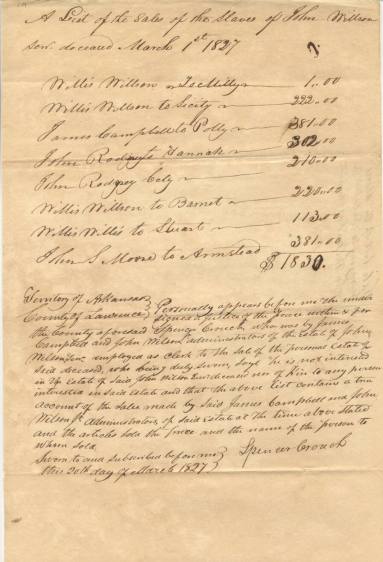 A List of the Sales of the Slaves of John Willson
senr deceased March 1st 1827
Willis Willson to Milly 1..00
Willis Willson to Sicity 222..00
James Campbell to Polly 381..00
John Rodney to Hannah 302..00
John Rodney Cely 210..00
Willis Willson to Barnet 220..00
Willis Willis to Stuart 113.00
John S Moore to Armstead 381..00
$1830.
Territory of Arkansas
County of Lawrence Personally appears before me the under
signed a justice of the peace within & for
the County aforesaid Spencer Crouch who was by James
Campbell and John Wilson administrators of the Estate of John
Wilson employed as clerk to the Sale of the personal Estate of
said deceased, who being duly sworn, says he is not interested
in the Estate of said John Wilson nor of Kin to any person
interested in said Estate and that the above list contains a true
account of the sales made by Said James Campbell and John
Wilson Jr. Administrators of said Estate at the time above Stated
and the articles sold the price and the name of the person to
whom sold.
Sworn to and subscribed before me Spencer Crouch
this 20th day of March 1827